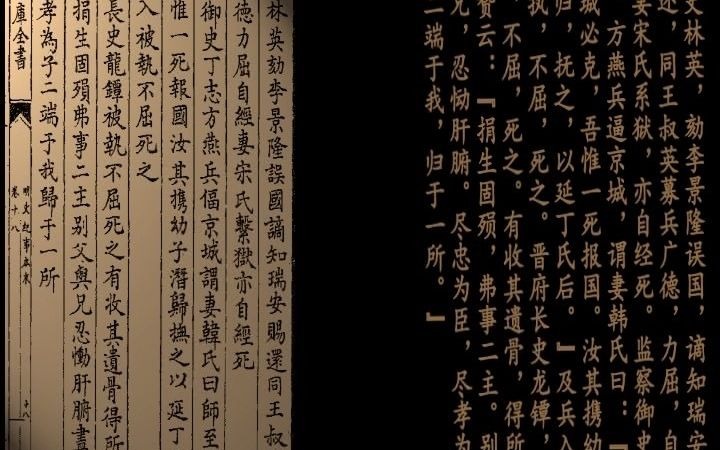 史林英，劾李景隆误国，谪知瑞安
还，同王叔英募兵广德，力屈，自
妻宋氏系狱，亦自经死。监察御史
方燕兵逼京城，谓妻韩氏曰：『
城必克，吾惟一死报国。汝其携幼
归，抚之，以延丁氏后。』及兵入
执，不屈，死之。晋府长史龙镡，
不屈，死之。有收其遗骨，得所
赞云：『捐生固殒，弗事二主。别
兄，忍恸肝腑。尽忠为臣，尽孝为
二端于我，归于一所。』
林英劾李景隆誤國謫知瑞安賜還同王叔
德力屈自經妻宋氏繫獄亦自經死
御史丁志方燕兵偪京城謂妻韓氏曰師至
惟一死報國汝其携幼子潛歸撫之以延丁
入被執不屈死之
長史龍鐔被執不屈死之有收其遺骨得所
捐生固殞弗事二主别父與兄忍慟肝腑盡
孝為子二端于我歸于一所
庫全書
明史紀事本末
卷十八
十八